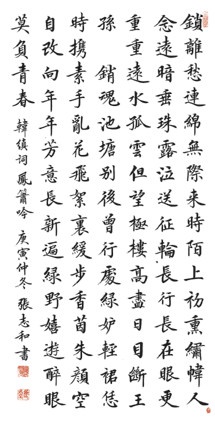 鎖離愁連綿無際來時陌上初熏繡幃人
念遠暗垂珠露泣送征輪長行長在眼更
重重遠水孤雲但望極樓高盡日目斷王
孫 銷魂池塘別後曾行處綠妒輕裙恁
時携素手亂花飛絮裏緩步香茵朱顏空
自改向年年芳意長新遍綠野嬉遊醉眼
莫負青春 韓縝詞鳳簫吟 庚寅仲冬 張志和書